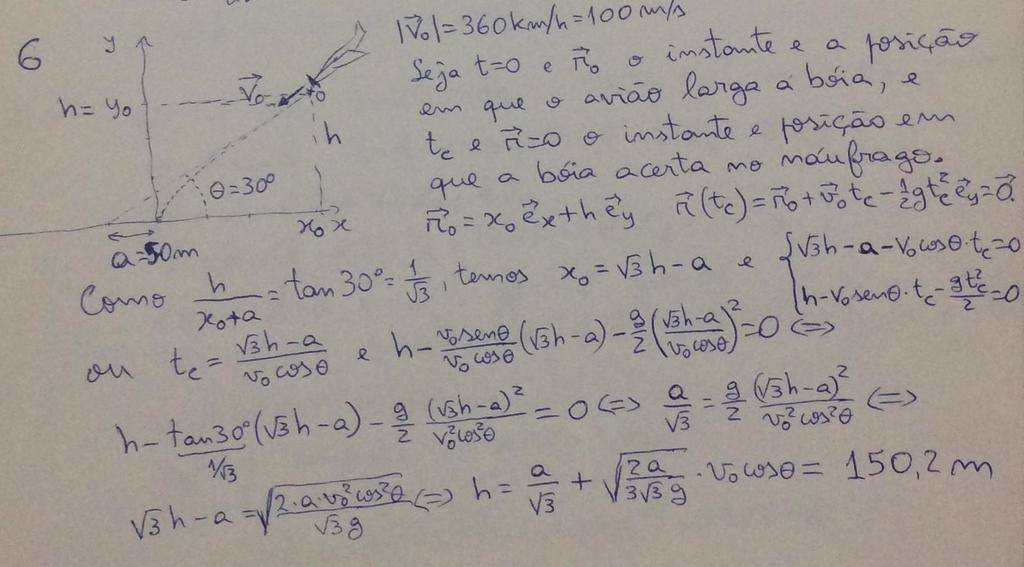 6
y
h = y₀
v⃗₀
h
θ = 30°
x₀ x
a = 50m
|v⃗₀| = 360 km/h = 100 m/s
Seja t=0 e r⃗₀ o instante e a posição
em que o avião larga a bóia, e
t_c e r⃗=0 o instante e posição em
que a bóia acerta no náufrago.
r⃗₀ = x₀ e⃗ₓ + h e⃗_y r⃗(t_c) = r⃗₀ + v⃗₀ t_c - 1/2 g t_c² e⃗_y = 0⃗.
Como h/(x₀+a) = tan 30° = 1/√3, temos x₀ = √3 h - a e { √3 h - a - v₀ cosθ · t_c = 0
h - v₀ senθ · t_c - g t_c²/2 = 0
ou t_c = (√3 h - a)/(v₀ cosθ) e h - (v₀ senθ)/(v₀ cosθ) (√3 h - a) - g/2 ((√3 h - a)/(v₀ cosθ))² = 0 <=>
h - tan 30° (√3 h - a) - g/2 (√3 h - a)²/(v₀² cos²θ) = 0 <=> a/√3 = g/2 (√3 h - a)²/(v₀² cos²θ) <=>
1/√3
√3 h - a = √(2 · a · v₀² cos²θ/(√3 g)) <=> h = a/√3 + √(2a/(3√3 g)) · v₀ cosθ = 150,2 m